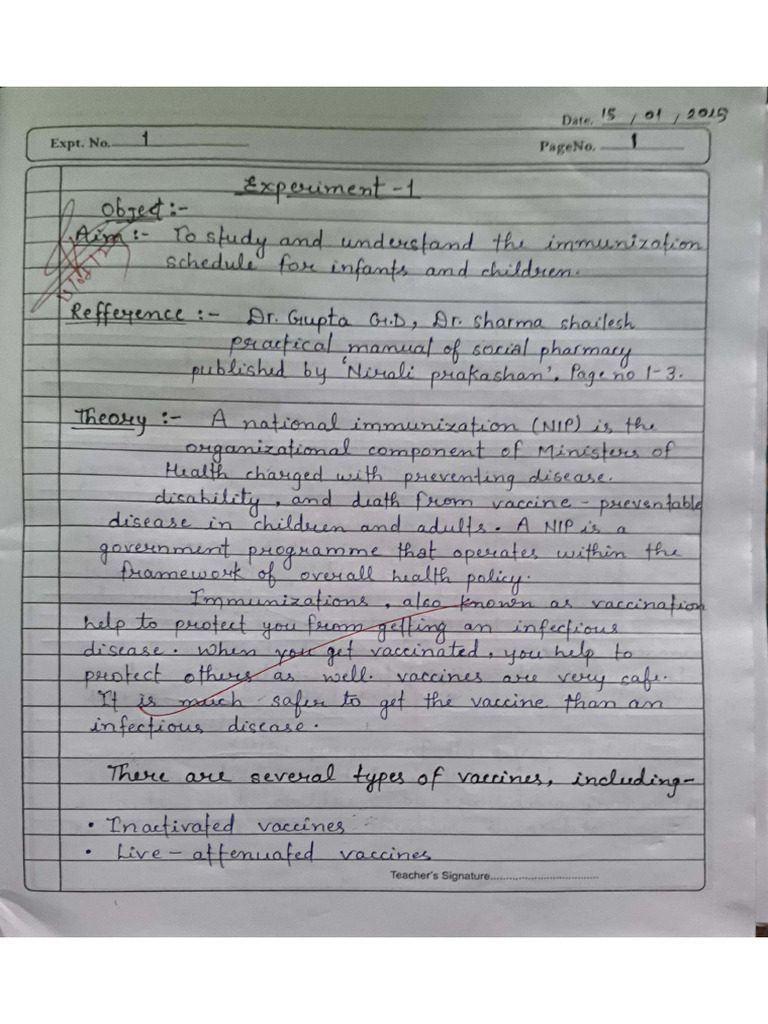 Date. 15 / 01 / 2025
Expt. No. 1
PageNo. 1
Experiment -1
Object :-
Aim :- To study and understand the immunization
schedule for infants and children.
Refference :- Dr. Gupta G.D, Dr. sharma shailesh
practical manual of social pharmacy
published by 'Nirali prakashan', Page no 1-3.
Theory :- A national immunization (NIP) is the
organizational component of Ministers of
Health charged with preventing disease.
disability, and death from vaccine - preventable
disease in children and adults. A NIP is a
government programme that operates within the
framework of overall health policy.
Immunizations, also known as vaccination
help to protect you from getting an infectious
disease. when you get vaccinated, you help to
protect others as well. vaccines are very safe.
It is much safer to get the vaccine than an
infectious disease.
There are several types of vaccines, including-
• Inactivated vaccines
• Live - attenuated vaccines
Teacher's Signature